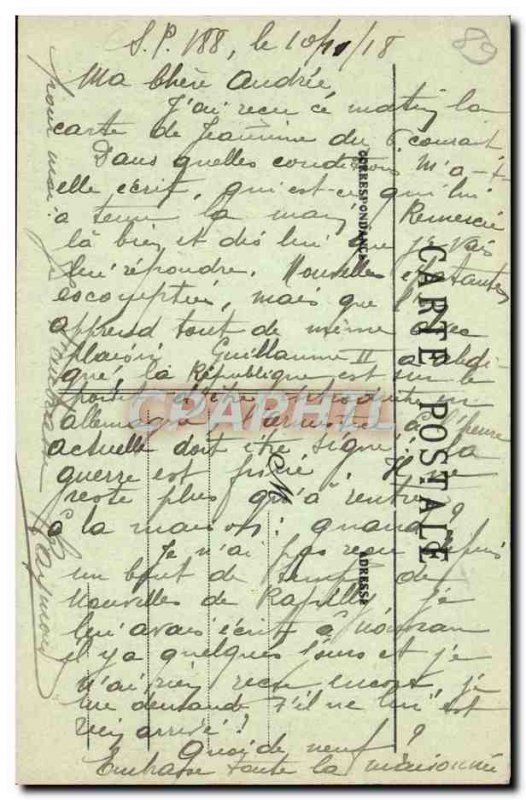 S.P. 188, le 10/11/18
89
Ma chère Andrée
J'ai reçu ce matin la
carte de Jeannine du 6 courant
Dans quelles conditions m'a-t-
elle écrit, qui est-ce qui lui
a tenu la main, Remercie
là bien et dis lui que je vais
lui répondre. Nouvelles épatantes
escomptées, mais que l'on
apprend tout de même avec
plaisir Guillaume II a abdi-
qué, la République est sur le
point d'être introduite en
allemagne l'armistice à l'heure
actuelle doit être signé, la
guerre est finie il ne
reste plus qu'à rentrer
à la maison : quand ?
Je n'ai pas reçu depuis
un bout de temps de
nouvelles de je
lui avais écrit à
il y a quelques jours et je
n'ai rien reçu encore, je
me demande s'il ne lui est
rien arrivé ?
Quoi de neuf ?
Embrasse toute la maisonnée
pour moi. Je
Raymond
CARTE POSTALE
CORRESPONDANCE
ADRESSE
M
CPAPHIL